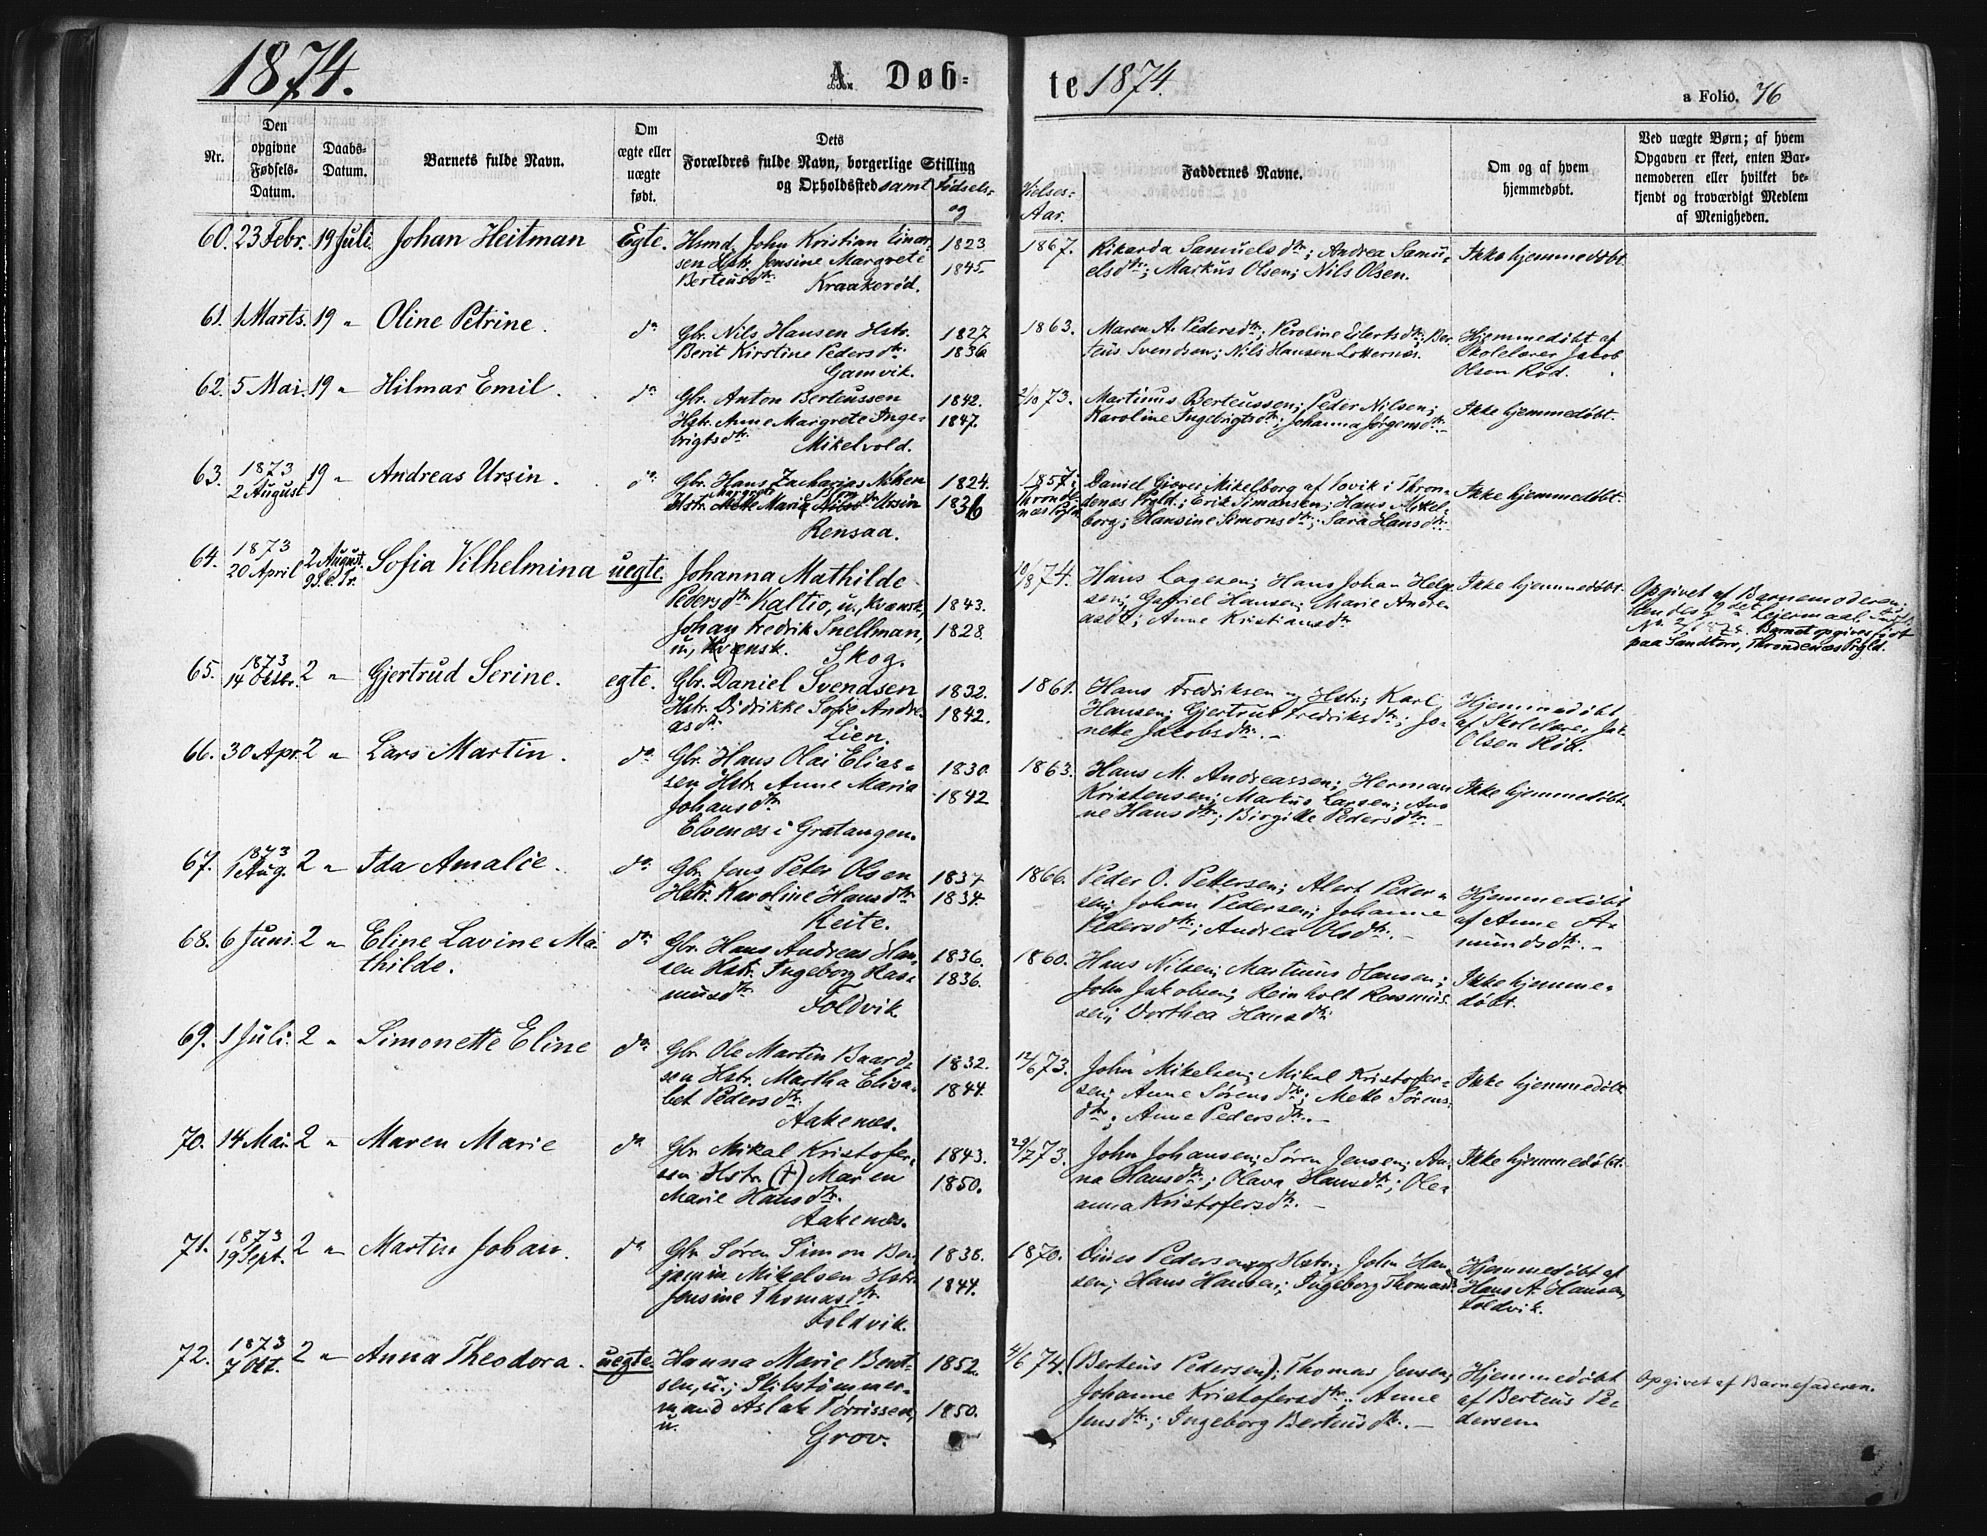 1874.
A Døb-
te 1874.
a Folio. 76
Nr.
Den
opgivne
Fødsels-
Datum.
Daabs-
Datum.
Barnets fulde Navn.
Om
ægte eller
uægte
født.
Dets
Forældres fulde Navn, borgerlige Stilling
og Opholdssted samt Fødsels-
og
Vielses-
Aar.
Faddernes Navne.
Om og af hvem
hjemmedøbt.
Ved uægte Børn; af hvem
Opgaven er skeet, enten Bar-
nemoderen eller hvilket be-
kjendt og troværdigt Medlem
af Menigheden.
60. 23 Febr. 19 Juli Johan Heitman Egte.
Hsmd. John Kristian Einar-
sen Hstr. Jensine Margrete
Berteusdtr. Kraakerød.
1823
1845
1867.
Rikarda Samuelsdtr; Andrea Samu-
elsdtr; Markus Olsen; Nils Olsen.
Ikke hjemmedøbt.
61. 1 Marts. 19 " Oline Petrine. do
Gbr. Nils Hansen Hstr.
Berit Kirstine Pedersdtr.
Gamvik.
1827.
1836.
1863.
Maren A. Pedersdtr; Peroline Eilertsdtr; Ber-
teus Svendsen; Nils Hansen
Hjemmedøbt af
Skolelærer Jakob
Olsen Rød.
62. 5 Mai. 19 " Hilmar Emil. do
Gbr. Anton Berteussen
Hstr. Anne Margrete Inge-
brigtsdtr. Mikelvold.
1842.
1847.
2/10 73.
Martinus Berteussen; Peder Nilsen;
Karoline Ingebrigtsdtr; Johanna Jørgensdtr.
Ikke hjemmedøbt.
63. 1873
2 August 19 " Andreas Ursin. do
Gbr. Hans Zacharias
Hstr. Mette Maria Ursin
Rensaa.
1824.
1836
1857;
Throndenæs Prgld.
Daniel Mikelborg af i Thron-
denæs Prgld.; Erik Simonsen; Hans Mikel-
borg; Hansine Simonsdtr; Sara Hansdtr.
Ikke hjemmedøbt.
64. 1873
20 April 2 August
9 S. e. Tr. Sofia Vilhelmina uegte.
Johanna Mathilde
Pedersdtr Kaltio, u., kvænsk,
Johan Fredrik Snellman,
u., Kvænsk. Skog.
1843.
1828.
10/8 74.
Hans Lagesen; Hans Johan Helge-
sen; Gabriel Hansen; Marie Andre-
asdtr; Anne Kristiansdtr
Ikke hjemmedøbt.
Opgivet af Barnemoderen;
Hendes Leiermaal
Barnet opgives født
paa Sandtorv, Throndenæs Prgld.
65. 1873
14 Oktbr. 2 " Gjertrud Serine. egte.
Gbr. Daniel Svendsen
Hstr. Didrikke Sofie Andre-
asdtr. Lien.
1832.
1842.
1861.
Hans Fredriksen og Hstr; Karl
Hansen; Gjertrud Fredriksdtr; Jo-
nette Jakobsdtr.
Hjemmedøbt
af Skolelærer Jak.
Olsen Rød.
66. 30 Apr. 2 " Lars Martin. do
Gbr. Hans Olai Elias-
sen Hstr. Anne Maria
Johansdtr
Elvenæs i Gratangen.
1830.
1842
1863.
Hans M. Andreassen; Herman
Kristensen; Markus Larsen; An-
ne Hansdtr; Birgitte Pedersdtr.
Ikke hjemmedøbt.
67. 1873
1 Aug. 2 " Ida Amalie. do
Gbr. Jens Peter Olsen
Hstr. Karoline Hansdtr
Reite.
1837
1834.
1866.
Peder O. Pettersen; Alert Peder-
sen; Johan Pedersen; Johanne
Pedersdtr; Andrea Olsdtr.
Hjemmedøbt
af Anne A-
mundsdtr.
68. 6 Juni. 2 " Eline Lavine Ma-
thilde. do
Gbr. Hans Andreas Han-
sen Hstr. Ingeborg Ras-
musdtr Foldvik
1836.
1836.
1860.
Hans Nilsen; Martinus Hansen;
John Jakobsen; Reinholt Rasmus-
sen; Dorthea Hansdtr
Ikke hjemme-
døbt.
69. 1 Juli. 2 " Simonette Eline do
Gbr. Ole Martin Baard-
sen Hstr. Martha Elisa-
bet Pedersdtr.
Aakenes.
1832.
1844.
12/6 73.
John Mikelsen; Mikal Kristofer-
sen; Anne Sørensdtr; Mette Sørens-
dtr; Anne Pedersdtr.
Ikke hjemmedøbt
70. 14 Mai. 2 " Maren Marie do
Gbr. Mikal Kristofer-
sen Hstr. (†) Maren
Marie Hansdtr.
Aakenes.
1843.
1850.
29/7 73.
John Johansen; Søren Jensen; An-
na Hansdtr; Olava Hansdtr; Ole-
anna Kristofersdtr.
Ikke hjemmedøbt.
71. 1873
19 Sept. 2 " Martin Johan. do
Gbr. Søren Simon Ben-
jamin Mikelsen Hstr.
Jensine Thomasdtr.
Foldvik.
1838.
1844.
1870.
Dines Pedersen og Hstr; John Han-
sen; Hans Hansen; Ingeborg Thomasd.
Hjemmedøbt af
Hans A. Hansen,
Foldvik.
72. 1873
7 Okt. 2 " Anna Theodora. uegte.
Hanna Marie Bent-
sen, u.; Skibstømmer-
mand Aslak Tørrissen,
u. Grov.
1852.
1850.
4/6 74.
(Berteus Pedersen); Thomas Jensen;
Johanne Kristofersdtr; Anne
Jensdtr; Ingeborg Berteusdtr.
Hjemmedøbt
af Berteus Pe-
dersen
Opgivet af Barnefaderen.